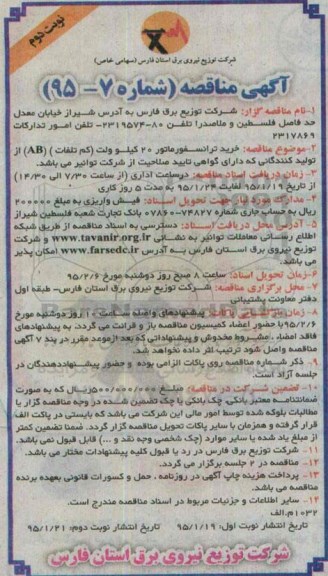 نوبت دوم
شرکت توزیع نیروی برق استان فارس (سهامی خاص)
آگهی مناقصه (شماره ۷- ۹۵)
۱-نام مناقصه گزار: شرکت توزیع برق فارس به آدرس شیراز خیابان معدل
حد فاصل فلسطین و ملاصدرا تلفن ۸۰-۲۳۱۹۵۷۴- تلفن امور تدارکات
۲۳۱۷۸۶۹
۲-موضوع مناقصه: خرید ترانسفورماتور ۲۰ کیلو ولت (کم تلفات) (AB) از
تولید کنندگانی که دارای گواهی تایید صلاحیت از شرکت توانیر می باشد.
۳- زمان دریافت اسناد مناقصه: درساعت اداری (از ساعت ۷/۳۰ الی ۱۴/۳۰)
از تاریخ ۹۵/۱/۱۹ لغایت ۹۵/۱/۲۴ به مدت ۵ روز کاری
۴- مدارک مورد نیاز جهت تحویل اسناد: فیش واریزی به مبلغ ۲۰۰۰۰۰
ریال به حساب جاری شماره ۰۷۸۶۰۰۷۴۸۲۷ بانک تجارت شعبه فلسطین شیراز
۵- آدرس محل دریافت اسناد: دسترسی به اسناد مناقصه از طریق شبکه
اطلاع رسانی معاملات توانیر به نشانی www.tavanir.org.ir و شرکت
توزیع برق استان فارس به آدرس www.farsedc.ir امکان پذیر
می باشد.
۶-زمان تحویل اسناد: ساعت ۸ صبح روز دوشنبه مورخ ۹۵/۲/۶
۷- محل برگزاری مناقصه: شرکت توزیع نیروی برق استان فارس- طبقه اول
دفتر معاونت پشتیبانی
۸- زمان بازگشایی پاکات: پیشنهادهای واصله ساعت ۱۰ روز دوشنبه مورخ
۹۵/۲/۶ با حضور اعضاء کمیسیون مناقصه باز و قرائت می گردد. به پیشنهادهای
فاقد امضاء ، مشروط مخدوش و پیشنهاداتی که بعد ازموعد مقرر در بند ۷ آگهی
مناقصه واصل شود ترتیب اثر داده نخواهد شد.
۹- ذکر شماره مناقصه روی پاکات الزامی بوده و حضور پیشنهاددهندگان در
جلسه آزاد است.
۱۰- تضمین شرکت در مناقصه: مبلغ ۵۰۰/۰۰۰/۰۰۰ریال که به صورت
ضمانتنامه معتبر بانکی، چک بانکی یا چک تضمین شده در وجه مناقصه گزار یا
مطالبات بلوکه شده توسط امور مالی این شرکت می باشد که بایستی در پاکت الف
قرار گرفته و همزمان با سایر پاکات تحویل مناقصه گزار گردد. ضمنا تضمین کمتر
از مبلغ یاد شده یا سایر موارد (چک شخصی وجه نقد و ...) قابل قبول نمی باشد.
۱۱- شرکت توزیع برق فارس در رد یا قبول کلیه پیشنهادات مختار می باشد.
۱۲- مناقصه در ۲ جلسه برگزار می گردد.
۱۳- پرداخت هزینه چاپ آگهی در روزنامه ، حمل و کسورات قانونی بعهده برنده
مناقصه می باشد.
۱۴- سایر اطلاعات و جزئیات مربوط در اسناد مناقصه مندرج است.
۱۰۳۲/م.الف
تاریخ انتشار نوبت اول: ۹۵/۱/۱۹ تاریخ انتشار نوبت دوم: ۹۵/۱/۲۱
شرکت توزیع نیروی برق استان فارس